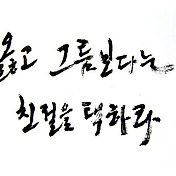 옳고 그름보다는
친절을 택하라